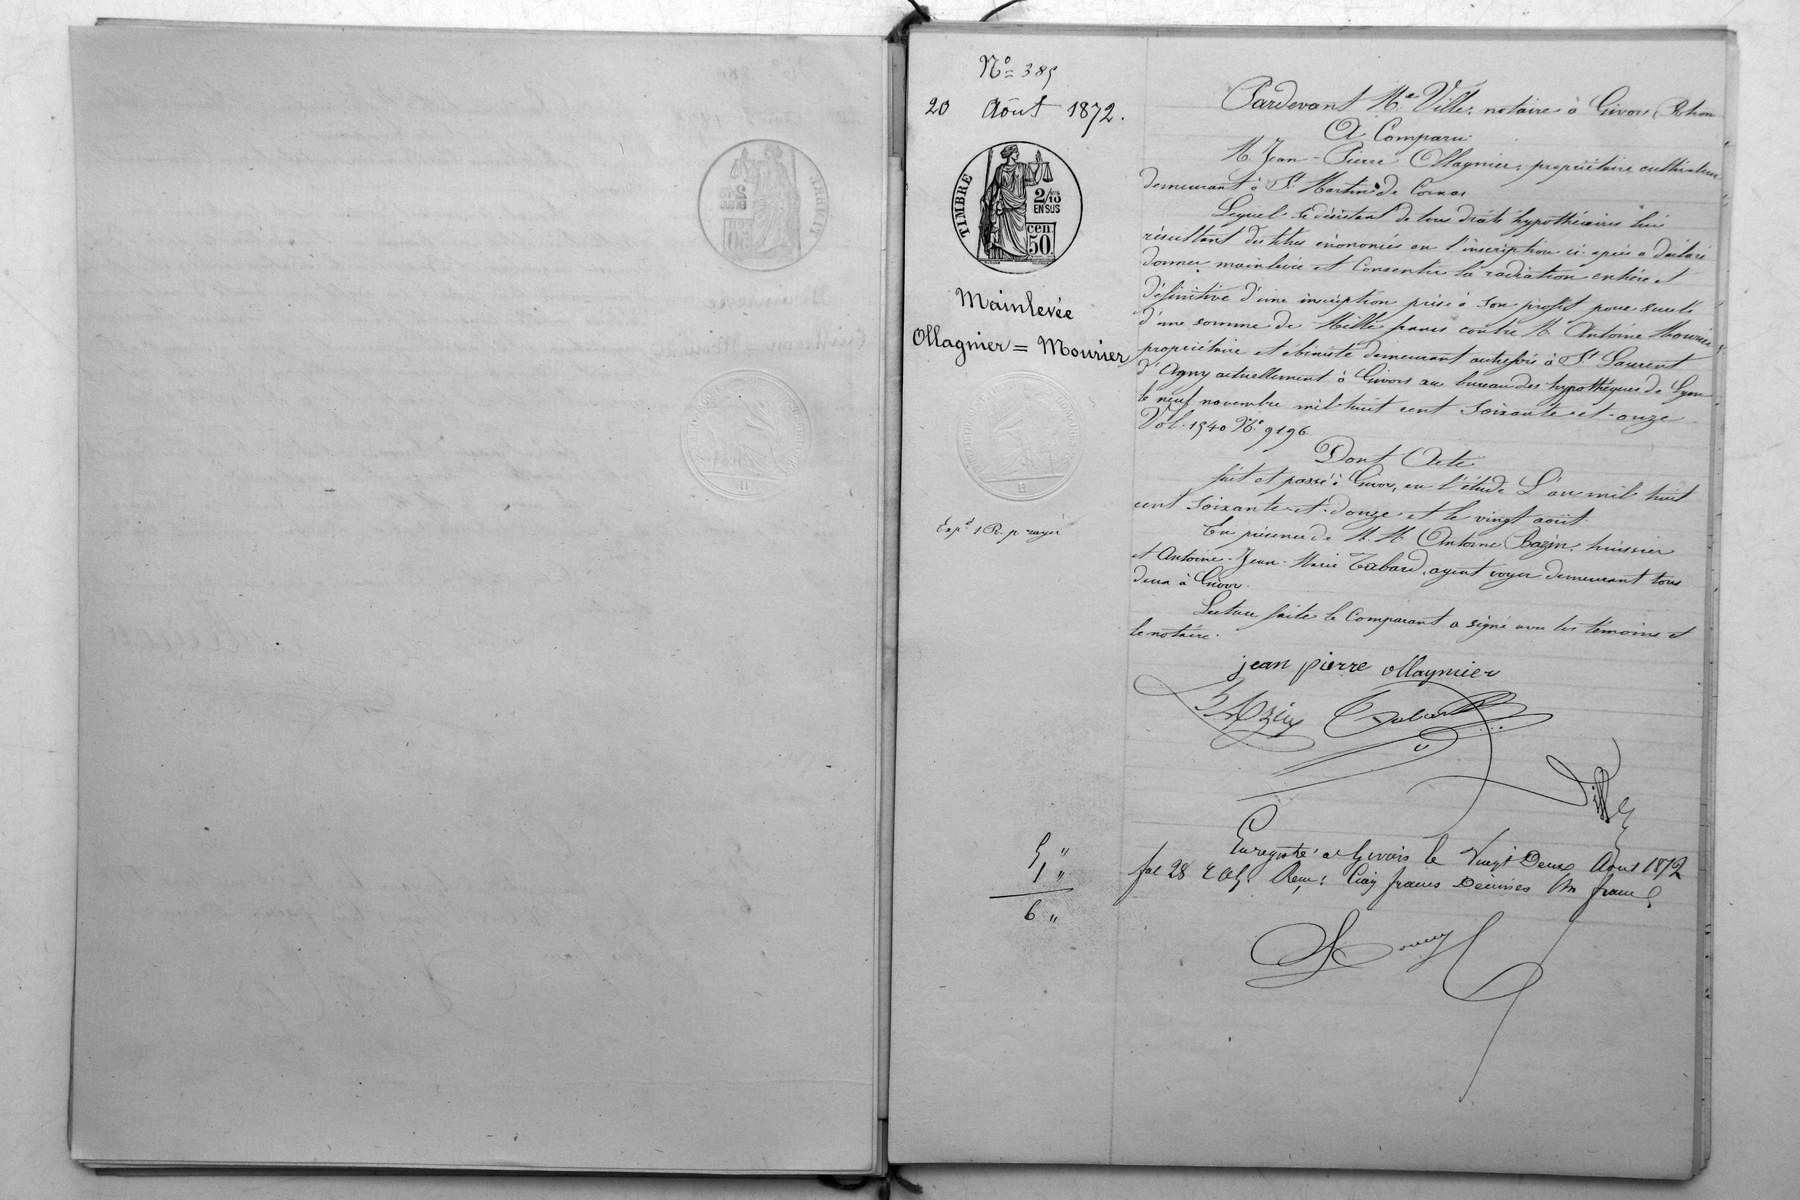 Nº 385
20 Août 1872.
TIMBRE
2/10
EN SUS
cen
50.
Mainlevée
Ollagnier = Mourier
Pardevant Me Ville, notaire à Givors, Rhône
A Comparu
M. Jean-Pierre Ollagnier, propriétaire cultivateur
demeurant à St Martin de Cornas
Lequel se désistant de tous droits hypothécaires lui
résultant des titres énoncés en l'inscription ci-après a déclaré
donner mainlevée et consentir la radiation entière et
définitive d'une inscription prise à son profit pour sureté
d'une somme de Mille francs contre M. Antoine Mourier
propriétaire et ébéniste demeurant autrefois à St Laurent
d'Agny actuellement à Givors au bureau des hypothèques de Lyon
le neuf novembre mil huit cent soixante-et-onze
Vol. 1540 Nº 9196.
Dont Acte
fait et passé à Givors, en l'étude L'an mil huit
cent soixante-et-douze et le vingt août
En présence de M.M. Antoine Bazin, huissier
et Antoine-Jean-Marie Tabard, agent voyer demeurant tous
deux à Givors.
Lecture faite le Comparant a signé avec les témoins et
le notaire.
jean pierre ollagnier
Bazin Tabard
Ville
5 "
1 "
6 "
Enregistré à Givors le Vingt Deux Août 1872
fol 28 Reçu: Cinq francs Décimes Un franc